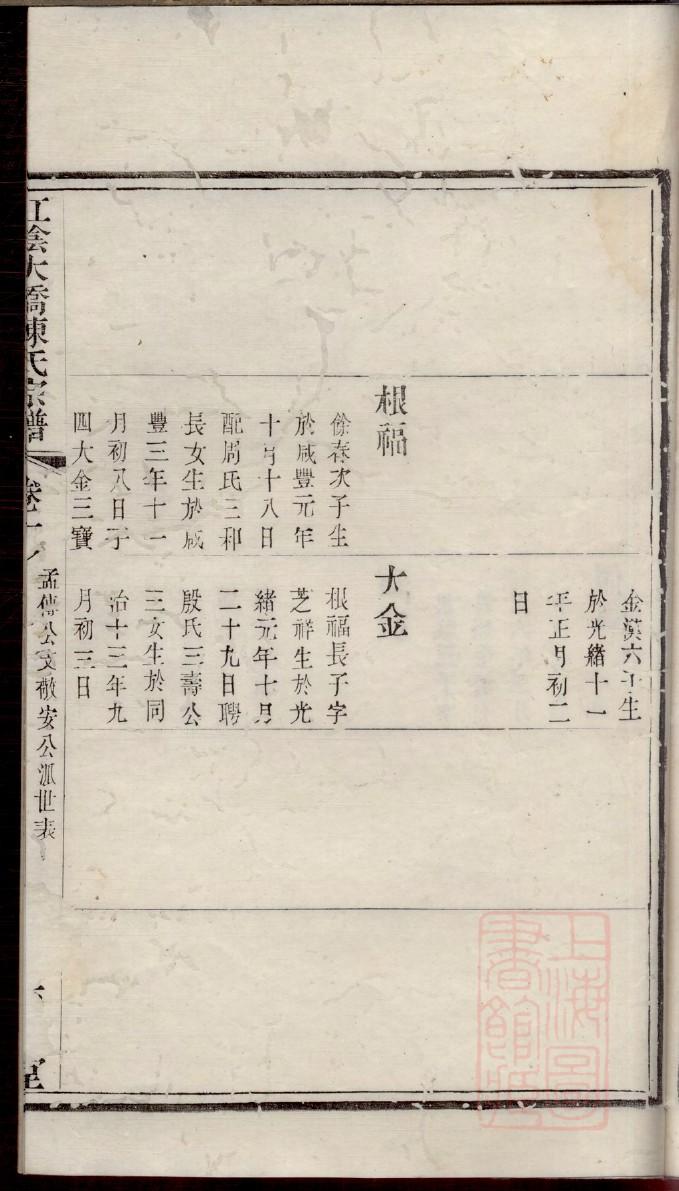 金漢六子生
於光緒十一
年正月初二
日
根福
徐春次子生
於咸豐元年
十月十八日
配周氏三和
長女生於咸
豐三年十一
月初八日子
四大金三寶
大金
根福長子字
芝祥生於光
緒元年十月
二十九日聘
殷氏三壽公
三女生於同
治十三年九
月初三日
江陰大橋陳氏宗譜
卷十
孟傳公支敬安公派世表
上海圖
書館藏